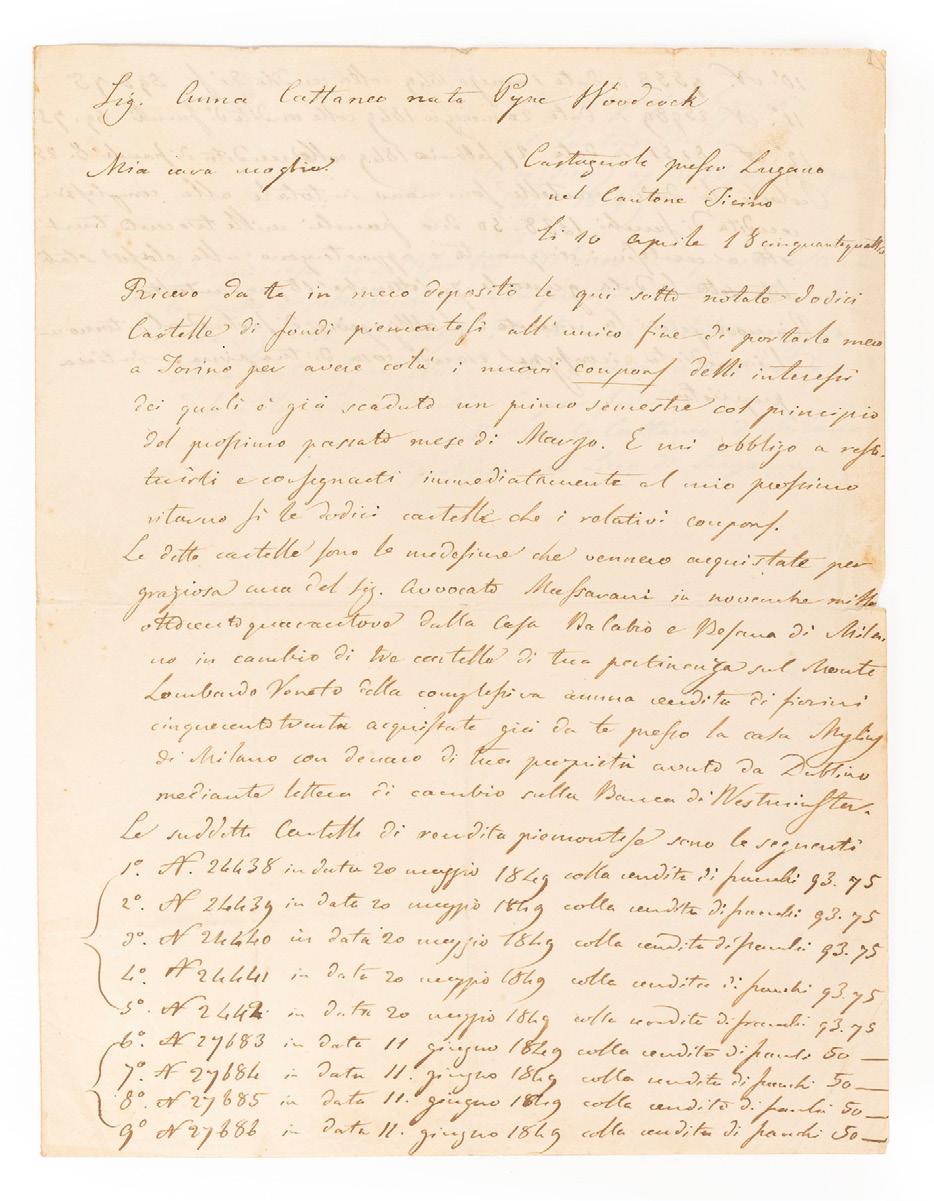 Sig. Anna Cattaneo nata Pyne Woodcock
Mia cara moglie
Castagnola presso Lugano
nel Cantone Ticino
li 10 aprile 18cinquantaquattro
Ricevo da te in mero deposito le qui sotto notate dodici
Cartelle di fondi piemontesi all'unico fine di portarle meco
a Torino per avere colà i nuovi coupons delli interessi
dei quali è già scaduto un primo semestre col principio
del prossimo passato mese di Marzo. E mi obbligo a resti-
tuirti e consegnarti immediatamente al mio prossimo
ritorno sì le dodici cartelle che i relativi coupons.
Le dette cartelle sono le medesime che vennero acquistate per
graziosa cura del Sig. Avvocato Massarani in novembre mille
ottocentoquarantove dalla Casa Balabio e Besana di Mila-
no in cambio di tre cartelle di tua pertinenza sul Monte
Lombardo Veneto della complessiva annua rendita di fiorini
cinquecentotrenta acquistate già da te presso la casa Mylius
di Milano con denaro di tua proprietà avuto da Dublino
mediante lettera di cambio sulla Banca di Westminster.
Le suddette Cartelle di rendita piemontese sono le seguenti
1º. N. 24438 in data 20 maggio 1849 colla rendita di franchi 93.75
2º. N 24439 in data 20 maggio 1849 colla rendita di franchi 93.75
3º. N 24440 in data 20 maggio 1849 colla rendita di franchi 93.75
4º. N 24441 in data 20 maggio 1849 colla rendita di franchi 93.75
5º N 2442 in data 20 maggio 1849 colla rendita di franchi 93.75
6º. N 27683 in data 11 giugno 1849 colla rendita di franchi 50 —
7º. N 27684 in data 11. giugno 1849 colla rendita di franchi 50 —
8º. N 27685 in data 11. giugno 1849 colla rendita di franchi 50 —
9º N 27686 in data 11. giugno 1849 colla rendita di franchi 50 —